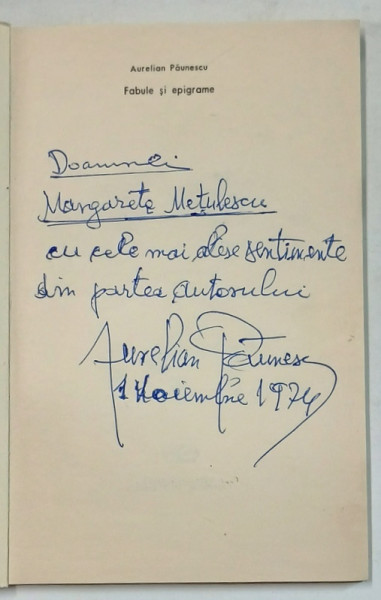 Aurelian Păunescu
Fabule și epigrame
Doamnei
Margareta Mețulescu
cu cele mai alese sentimente
din partea autorului
Aurelian Păunescu
1 Noiembrie 1974